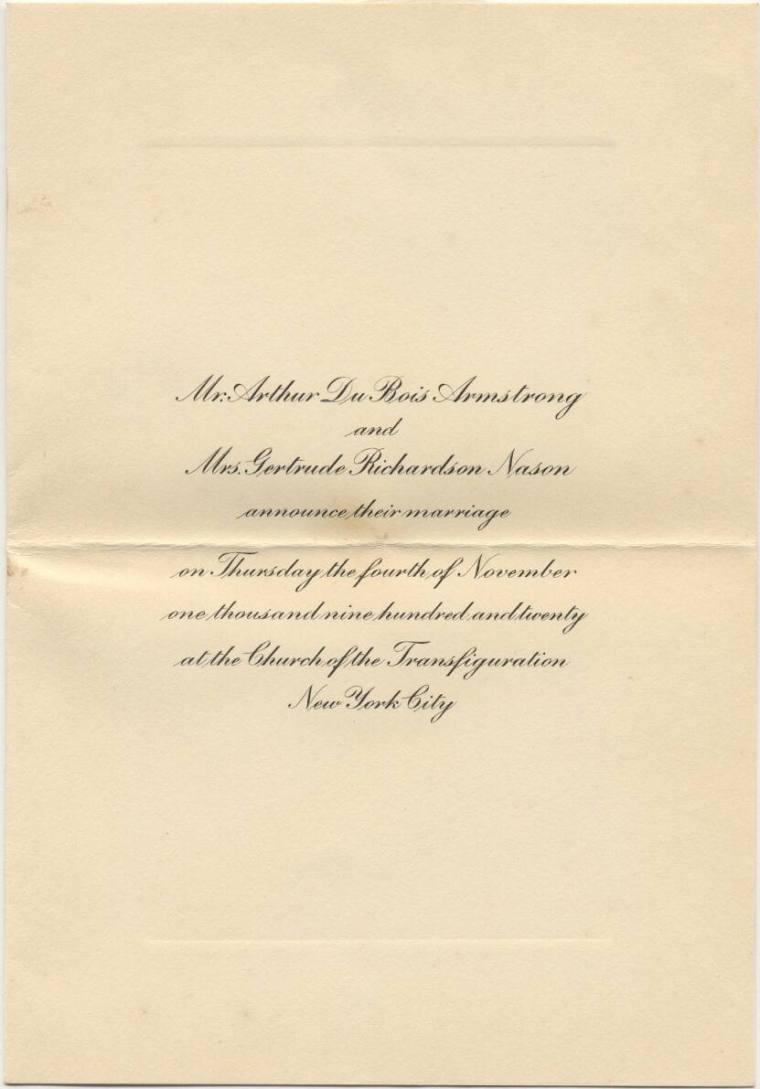 Mr. Arthur Du Bois Armstrong
and
Mrs. Gertrude Richardson Nason
announce their marriage
on Thursday the fourth of November
one thousand nine hundred and twenty
at the Church of the Transfiguration
New York City